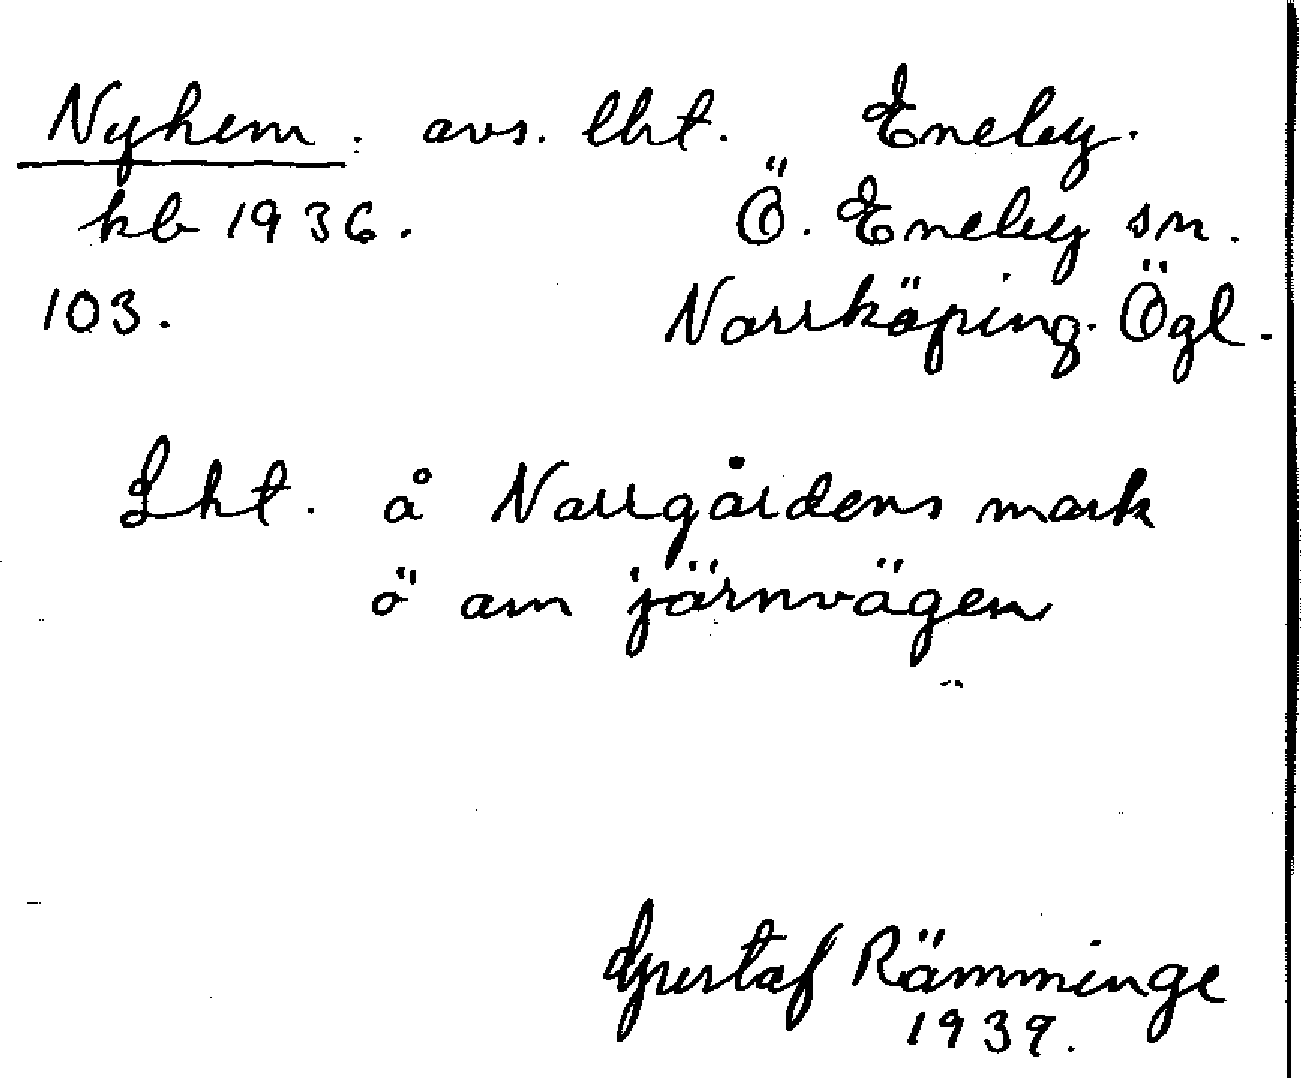 Nyhem. avs. lht. Eneby.
kb 1936. Ö. Eneby sn.
103. Norrköping. Ögl.
Lht. å Norrgårdens mark
ö om järnvägen
Gustaf Rämminge
1939.